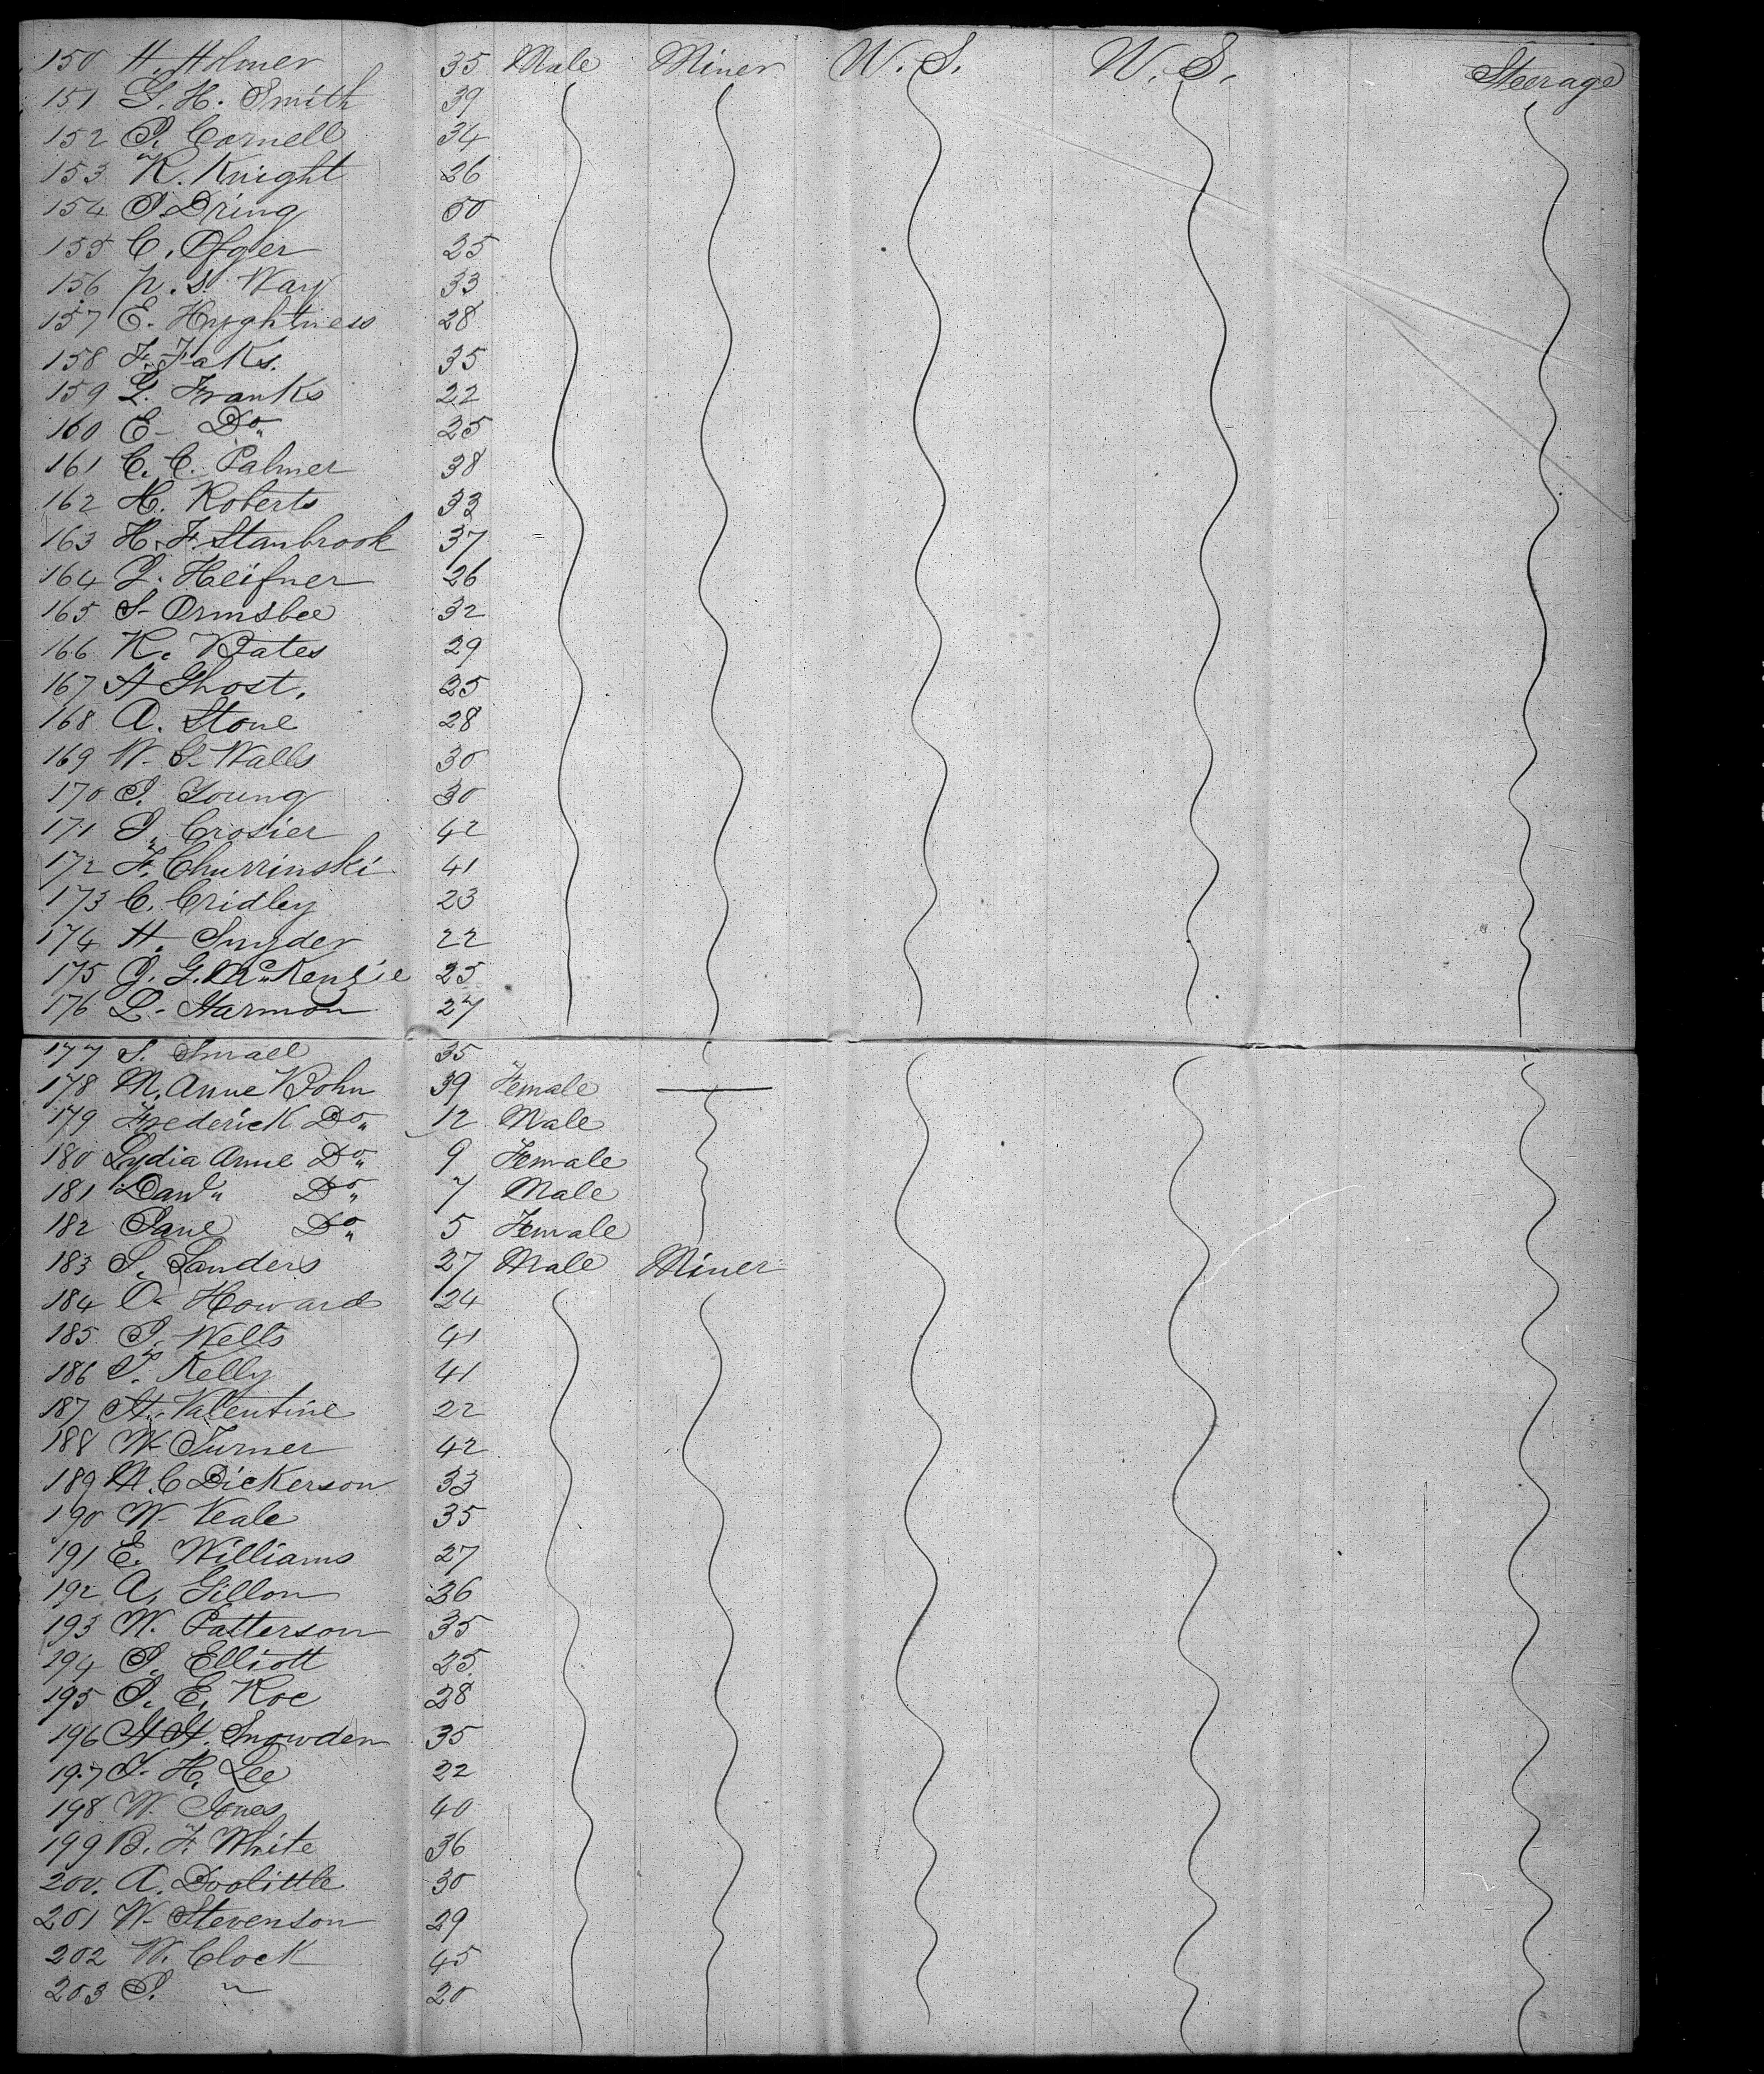 150 H. Holmer 35 Male Miner U.S. U.S. Steerage
151 G. H. Smith 39
152 P. Cornell 34
153 R. Knight 26
154 J. Dring 50
155 C. Ofger 25
156 P. S. Way 33
157 E. Hyghtness 28
158 F. Jaks. 35
159 L. Franks 22
160 E- Do 25
161 C. C. Palmer 38
162 H. Roberts 33
163 H. F. Stanbrook 37
164 J. Heifner 26
165 S- Ormsbee 32
166 R. Bates 29
167 A Ghost. 25
168 A. Stone 28
169 W- S- Walls 30
170 J. Young 30
171 J. Crosier 42
172 F. Churrinski 41
173 C. Cridley 23
174 H. Snyder 22
175 J. G. McKenzie 25
176 L- Harmon 27
177 S. Small 35
178 M. Anne Bohn 39 Female
179 Frederick Do 12 Male
180 Lydia Anne Do 9 Female
181 Danl Do 7 Male
182 Jane Do 5 Female
183 S. Sanders 27 Male Miner
184 O- Howard 24
185 J. Wells 41
186 P. Kelly 41
187 A. Valentine 22
188 W- Turner 42
189 M. C Dickerson 33
190 W- Veale 35
191 E. Williams 27
192 A. Gillon 36
193 W. Patterson 35
194 J. Elliott 25
195 J. E. Roe 28
196 H. Snowden 35
197 J- H. Lee 22
198 W. Jones 40
199 B. F. White 36
200. A. Doolittle 30
201 W- Stevenson 29
202 W. Clock 45
203 J. " 20